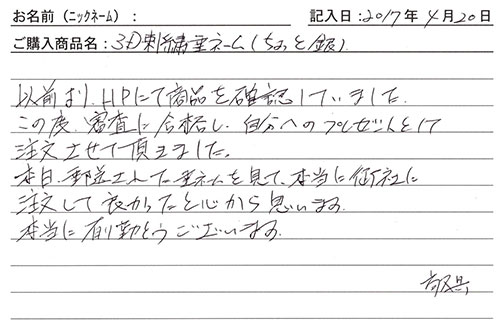 お名前（ニックネーム）： 記入日：2017年4月20日
ご購入商品名：3D刺繍重ネーム（ちょっと銀）
以前より、HPにて商品を確認していました。
この度、審査に合格し、自分へのプレゼントとして
注文させて頂きました。
本日、郵送された重ネームを見て、本当に御社に
注文して良かったと心から思います。
本当に有り難とうございます。
敬具